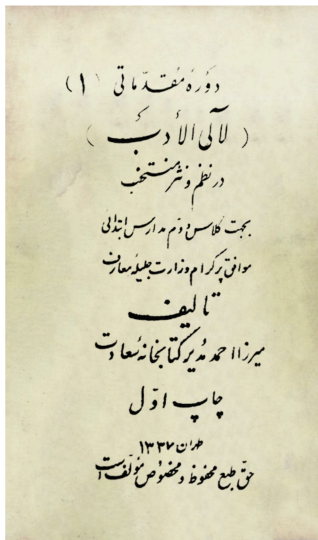 دوره مقدّماتی (۱)
(لآلی الأدب)
در نظم و نثر منتخب
بجهت کلاس دوّم مدارس ابتدائی
موافق پرگرام وزارت جلیله معارف
تالیف
میرزا احمد مدیر کتابخانه سعادت
چاپ اوّل
طهران ۱۳۳۷
حق طبع محفوظ و مخصوص مؤلف است